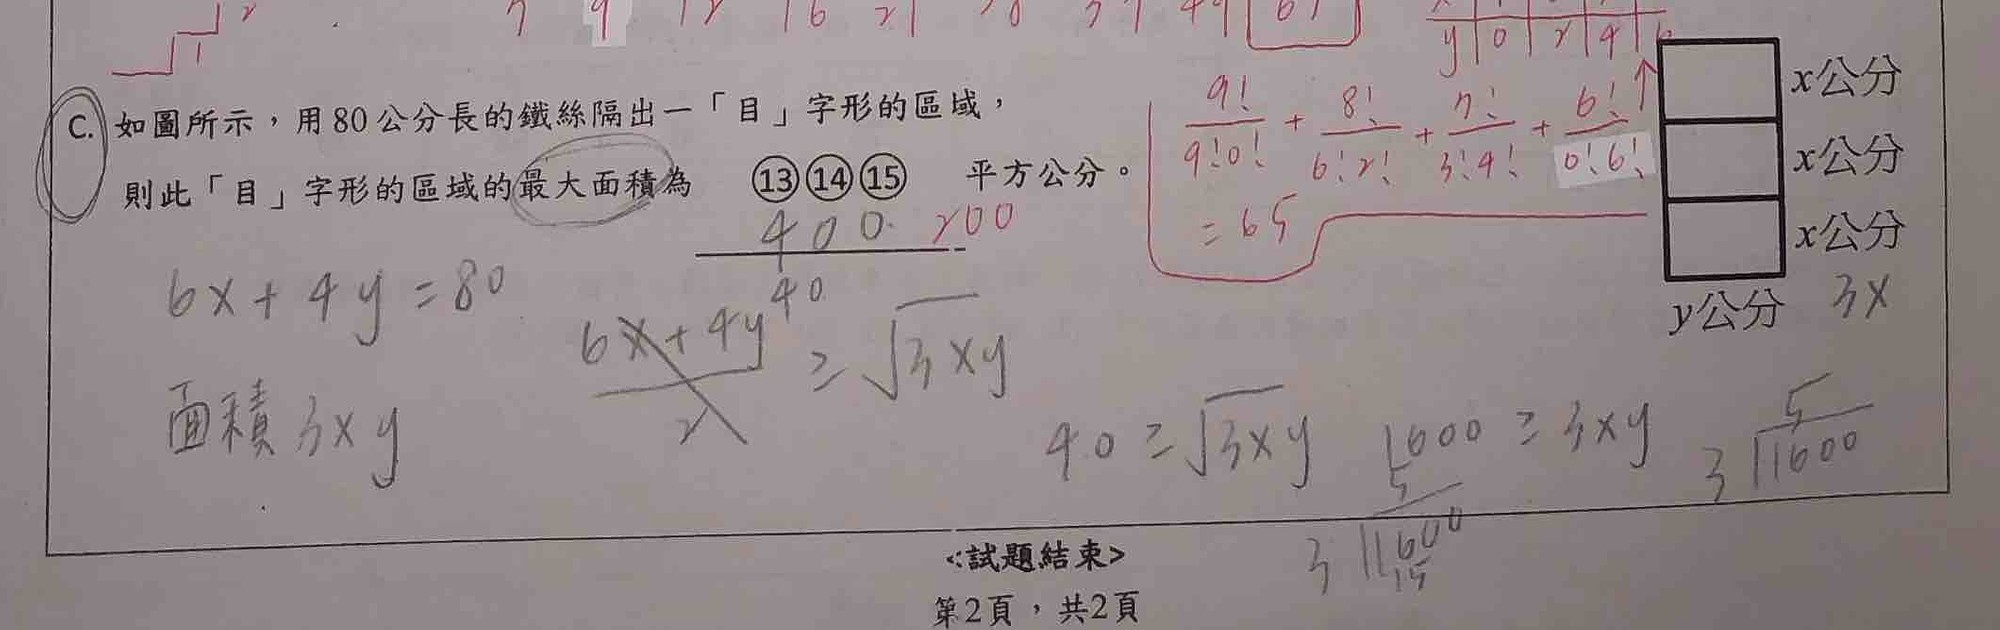 C. 如圖所示，用80公分長的鐵絲隔出一「目」字形的區域，
則此「目」字形的區域的最大面積為 ⑬⑭⑮ 平方公分。
400 200
6x+4y=80
面積 3xy
6x+4y 40
2
≥ √3xy
40 ≥ √3xy
1600 ≥ 3xy
5
3 1600
5
3 1600
15
9! + 8! + 7! + 6!
9!0! 6!2! 3!4! 0!6!
= 65
y 0 2 4
x公分
x公分
x公分
y公分 3x
<試題結束>
第2頁，共2頁